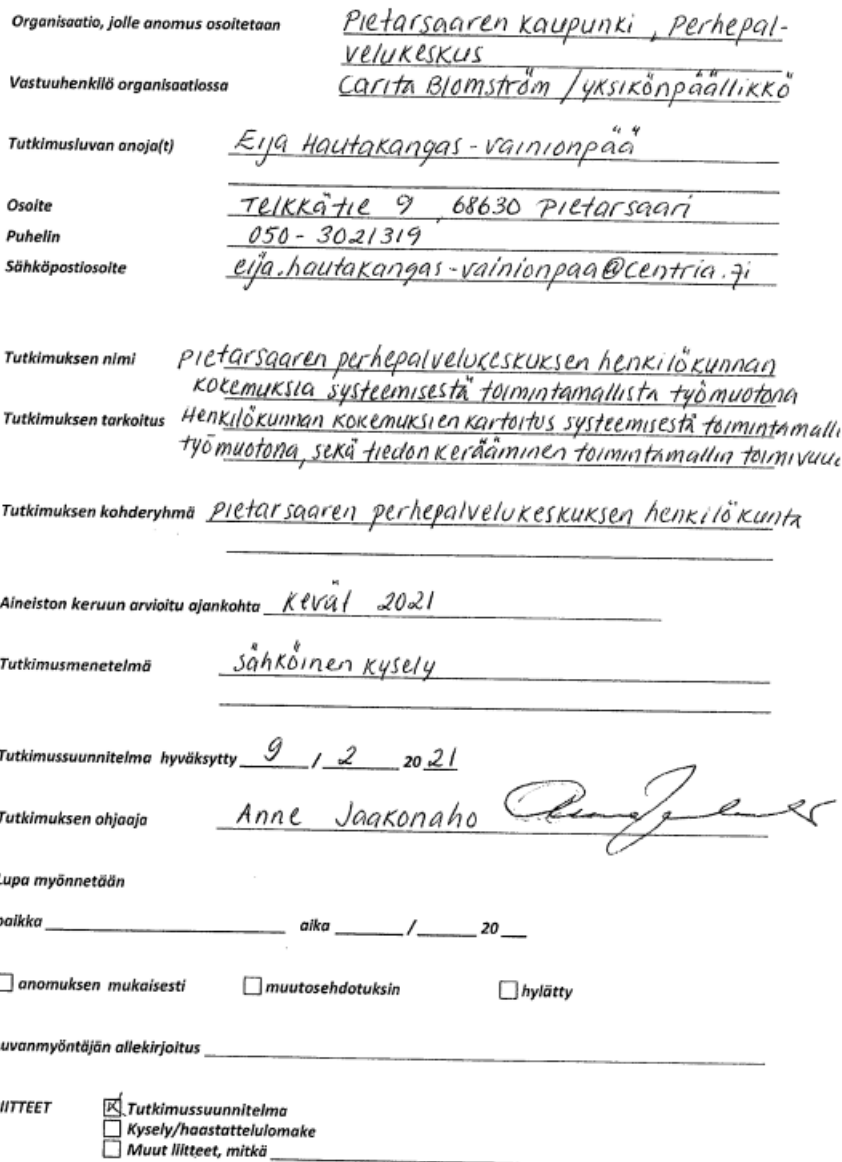 Organisaatio, jolle anomus osoitetaan Pietarsaaren kaupunki, perhepal-
velukeskus
Vastuuhenkilö organisaatiossa Carita Blomström / yksikönpäällikkö
Tutkimusluvan anoja(t) Eija Hautakangas-Vainionpää
Osoite Telkkätie 9, 68630 Pietarsaari
Puhelin 050-3021319
Sähköpostiosoite eija.hautakangas-vainionpaa@centria.fi
Tutkimuksen nimi Pietarsaaren perhepalvelukeskuksen henkilökunnan
kokemuksia systeemisestä toimintamallista työmuotona
Tutkimuksen tarkoitus Henkilökunnan kokemuksien kartoitus systeemisestä toimintamalli
työmuotona, sekä tiedon kerääminen toimintamallin toimivuu
Tutkimuksen kohderyhmä Pietarsaaren perhepalvelukeskuksen henkilökunta
Aineiston keruun arvioitu ajankohta Kevät 2021
Tutkimusmenetelmä Sähköinen kysely
Tutkimussuunnitelma hyväksytty 9 / 2 20 21
Tutkimuksen ohjaaja Anne Jaakonaho
Lupa myönnetään
paikka aika / 20
anomuksen mukaisesti muutosehdotuksin hylätty
uvanmyöntäjän allekirjoitus
IITTEET Tutkimussuunnitelma
Kysely/haastattelulomake
Muut liitteet, mitkä